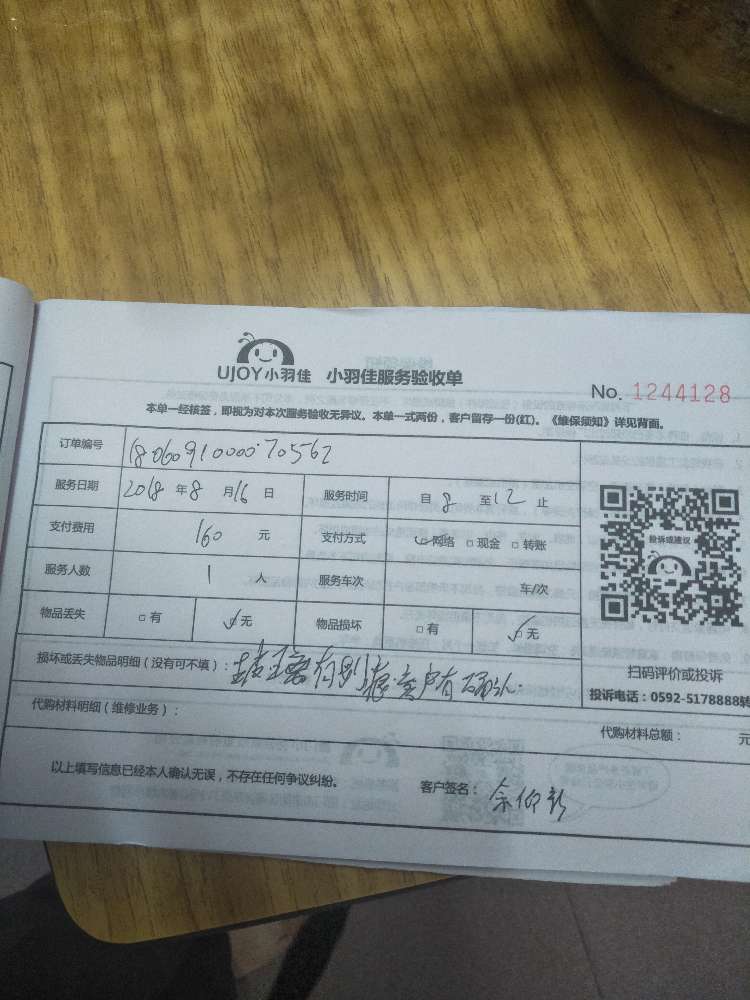 UJOY小羽佳 小羽佳服务验收单
No. 1244128
本单一经核签，即视为对本次服务验收无异议。本单一式两份，客户留存一份(红)。《维保须知》详见背面。
订单编号 180609100000070562
服务日期 2018 年 8 月 16 日 服务时间 自 8 至 12 止
支付费用 160 元 支付方式 ☑网络 □现金 □转账
服务人数 1 人 服务车次 车/次
物品丢失 □有 ☑无 物品损坏 □有 ☑无
投诉或建议
扫码评价或投诉
投诉电话：0592-5178888转
损坏或丢失物品明细（没有可不填）：玻璃有刮痕客户有确认.
代购材料明细（维修业务）：
代购材料总额： 元
以上填写信息已经本人确认无误，不存在任何争议纠纷。 客户签名：余仰新